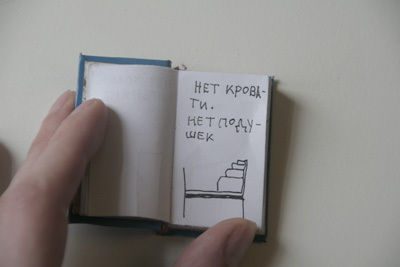 НЕТ КРОВА-
ТИ.
НЕТ ПОДУ-
ШЕК